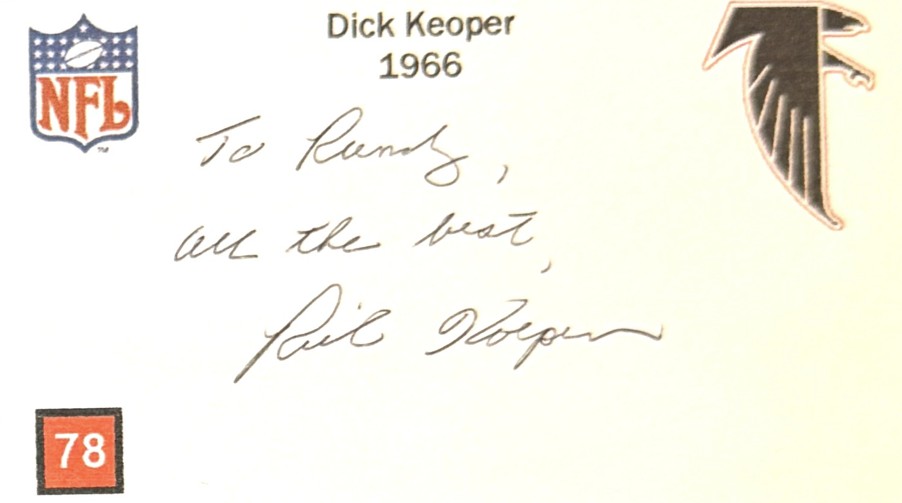 Dick Keoper
1966
NFL
TM
To Randy,
all the best,
Rich Koeper
78